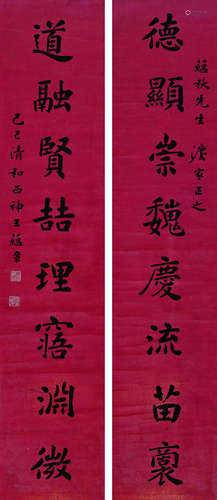 德顯崇魏慶流苗裔
藴秋先生 灋家正之
道融賢喆理寤淵微
己巳清和西神王藴章